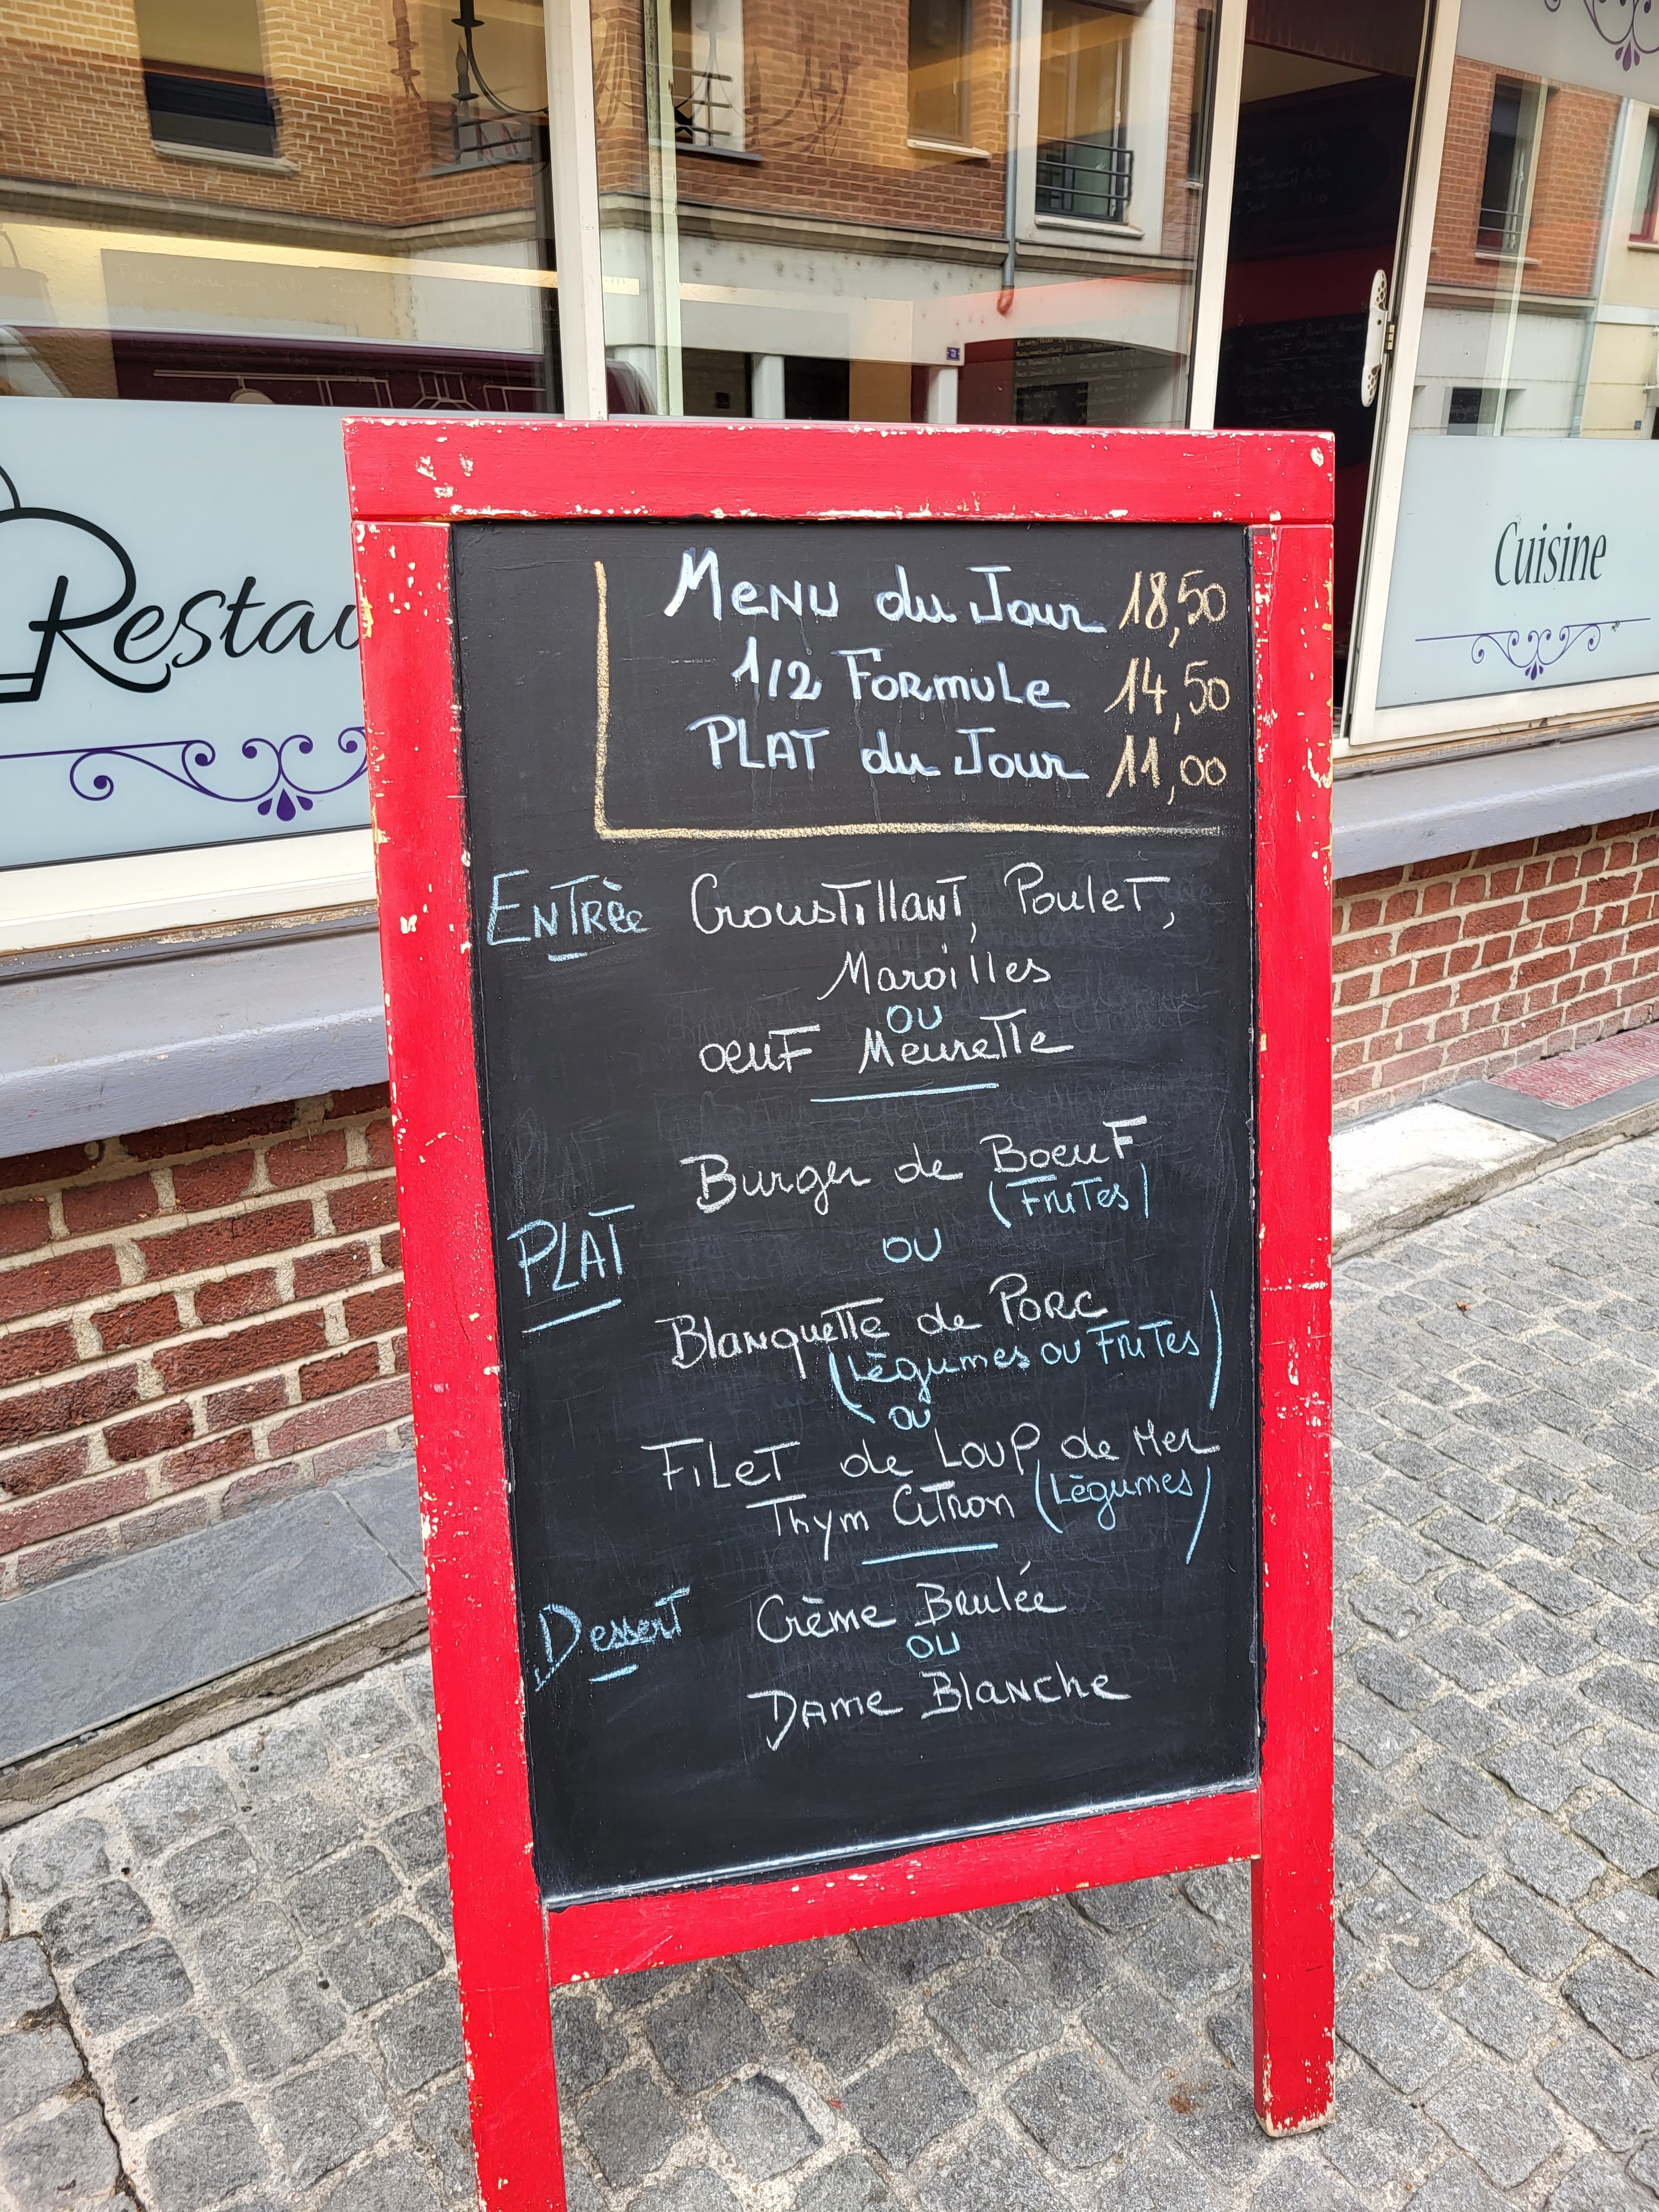 Restau
Cuisine
Menu du Jour 18,50
1/2 Formule 14,50
PLAT du Jour 11,00
Entrèe Croustillant, Poulet,
Maroilles
ou
oeuf Meurette
PLAT
Burger de Boeuf
(Frites)
ou
Blanquette de Porc
(Lègumes ou Frites)
ou
Filet de Loup de Mer
Thym Citron (Lègumes)
Dessert Crème Brulée
ou
Dame Blanche